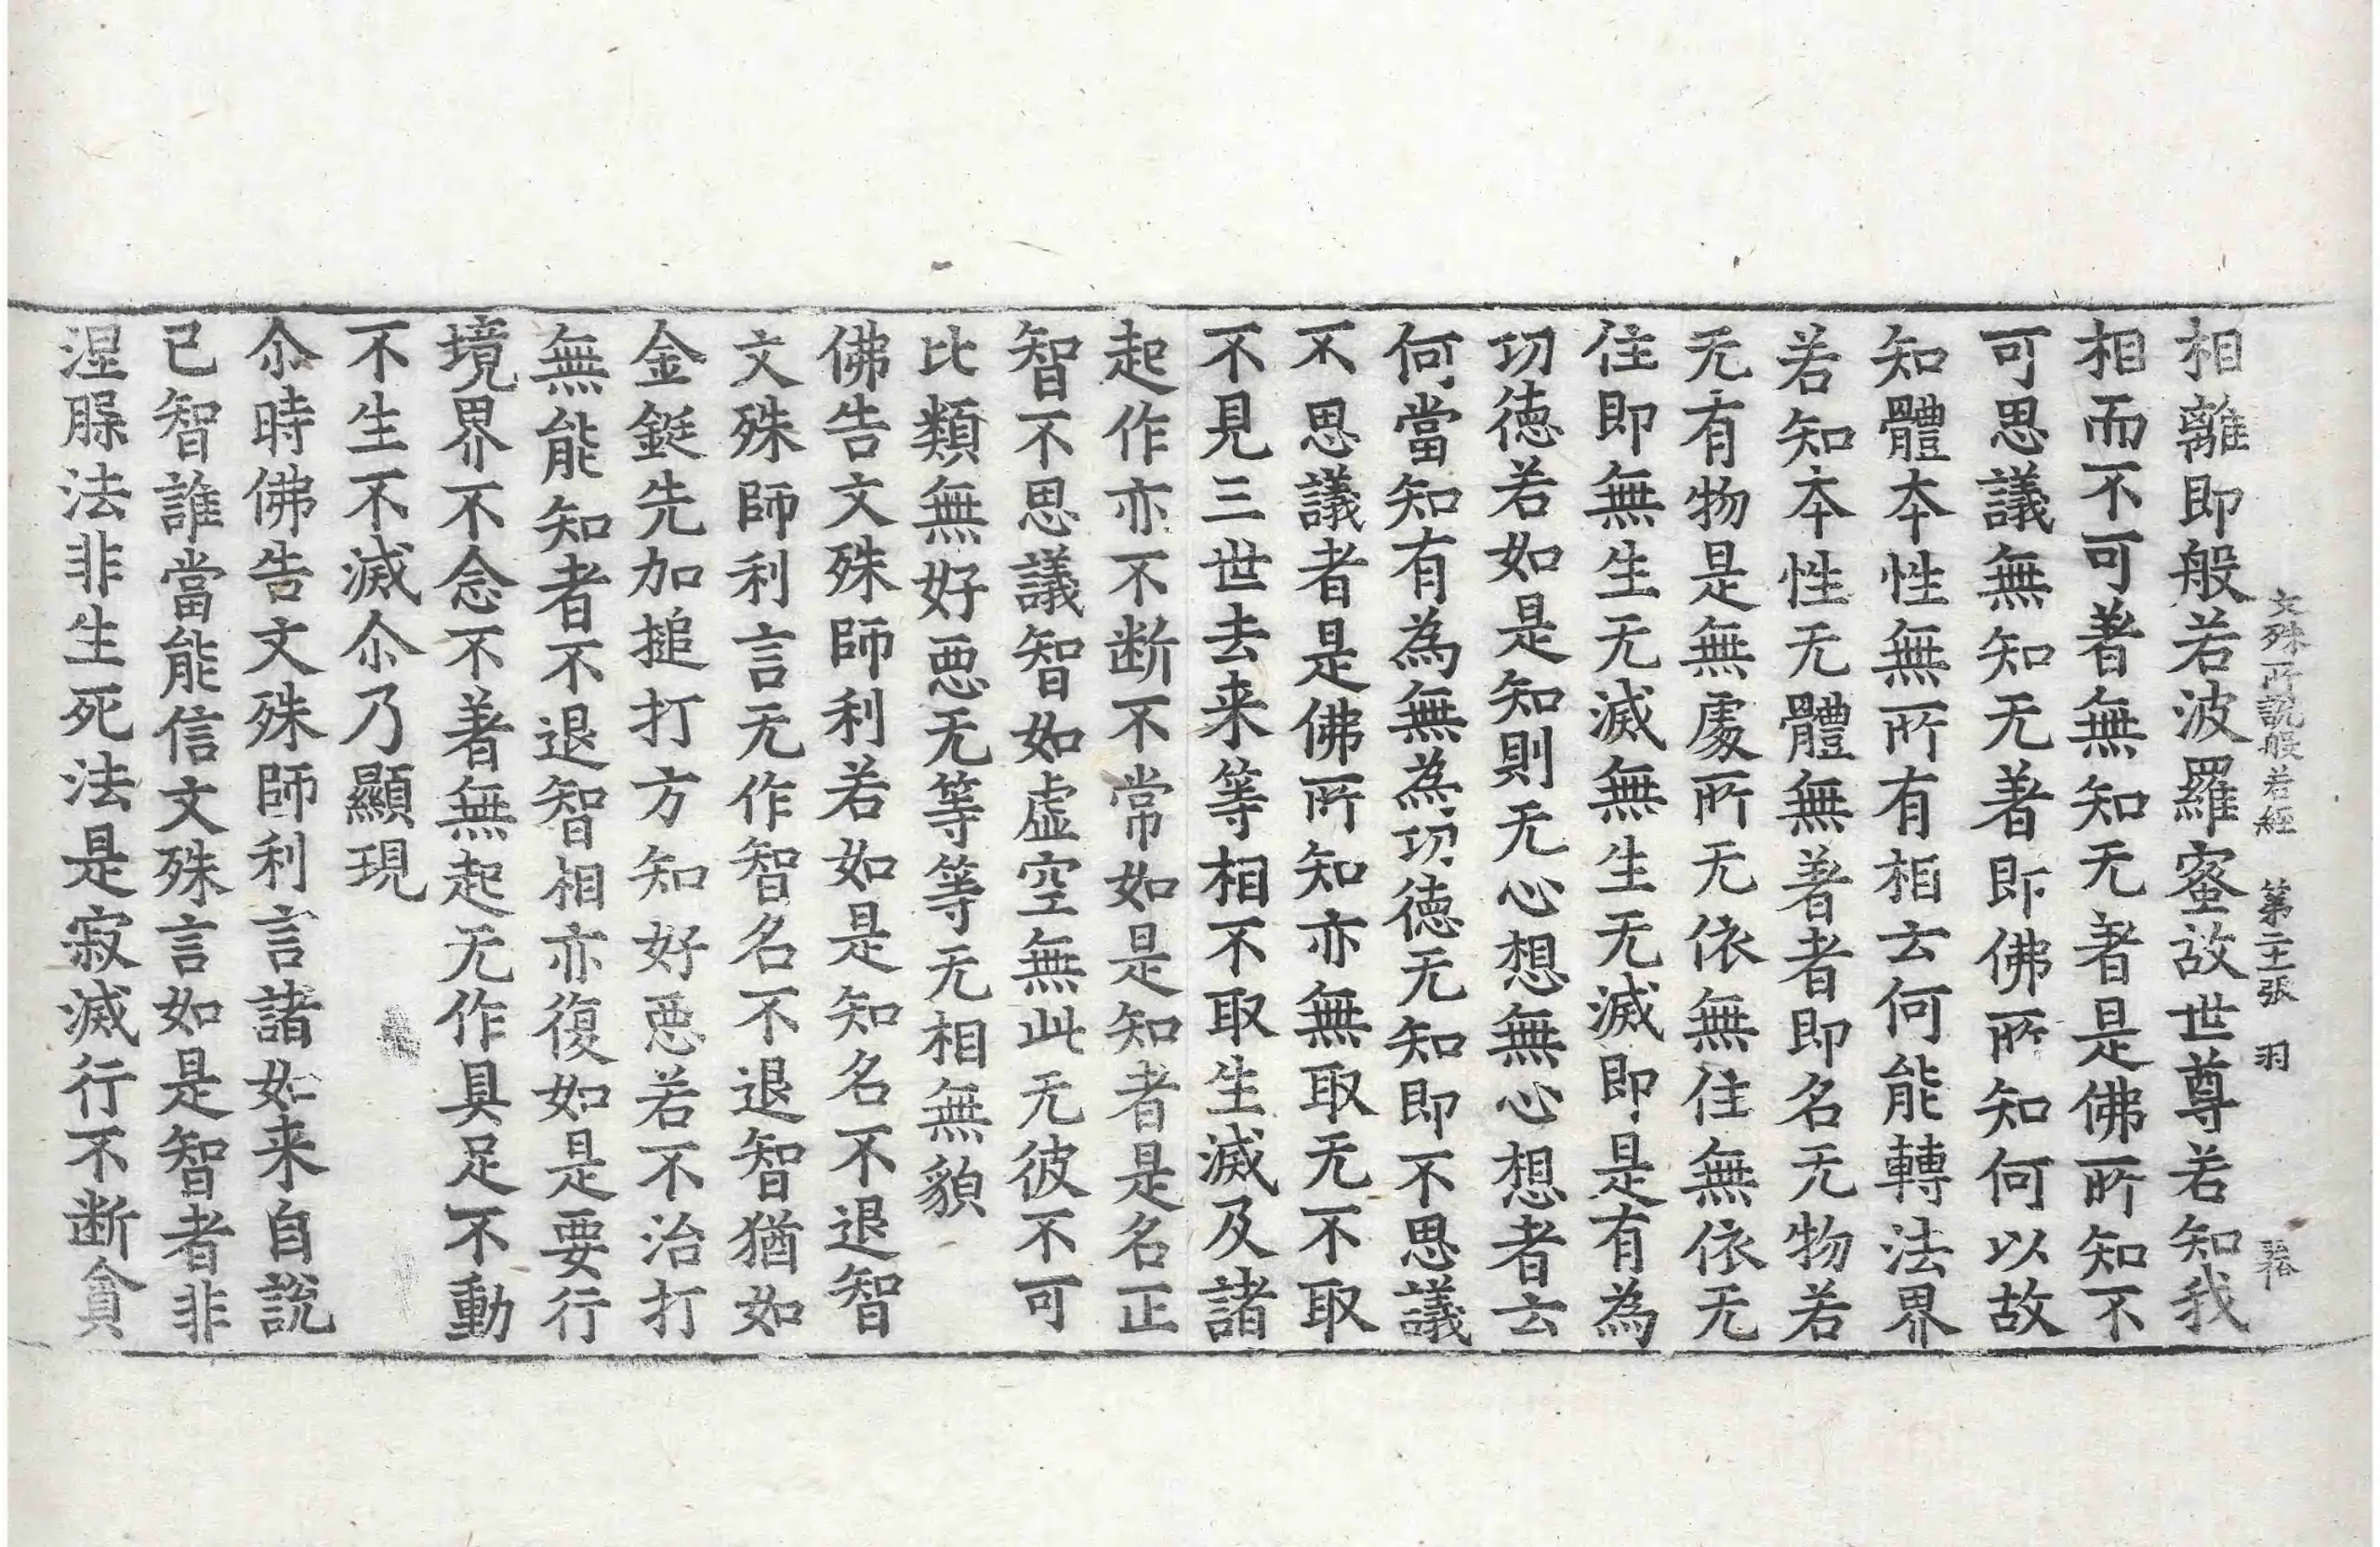 文殊所說般若經　第二主張　羽
相離即般若波羅蜜故世尊若知我
相而不可著無知无著是佛所知不
可思議無知无著即佛所知何以故
知體本性無所有相云何能轉法界
若知本性无體無著者即名无物若
无有物是無處所无依無住無依无
住即無生无滅無生无滅即是有為
功德若如是知則无心想無心想者云
何當知有為無為功德无知即不思議
不思議者是佛所知亦無取无不取
不見三世去来等相不取生滅及諸
起作亦不断不常如是知者是名正
智不思議智如虛空無此无彼不可
比類無好惡无等等无相無貌
佛告文殊師利若如是知名不退智
文殊師利言无作智名不退智猶如
金鋌先加搥打方知好惡若不治打
無能知者不退智相亦復如是要行
境界不念不著無起无作具足不動
不生不滅尒乃顯現
尒時佛告文殊師利言諸如来自說
已智誰當能信文殊言如是智者非
涅槃法非生死法是寂滅行不断貪